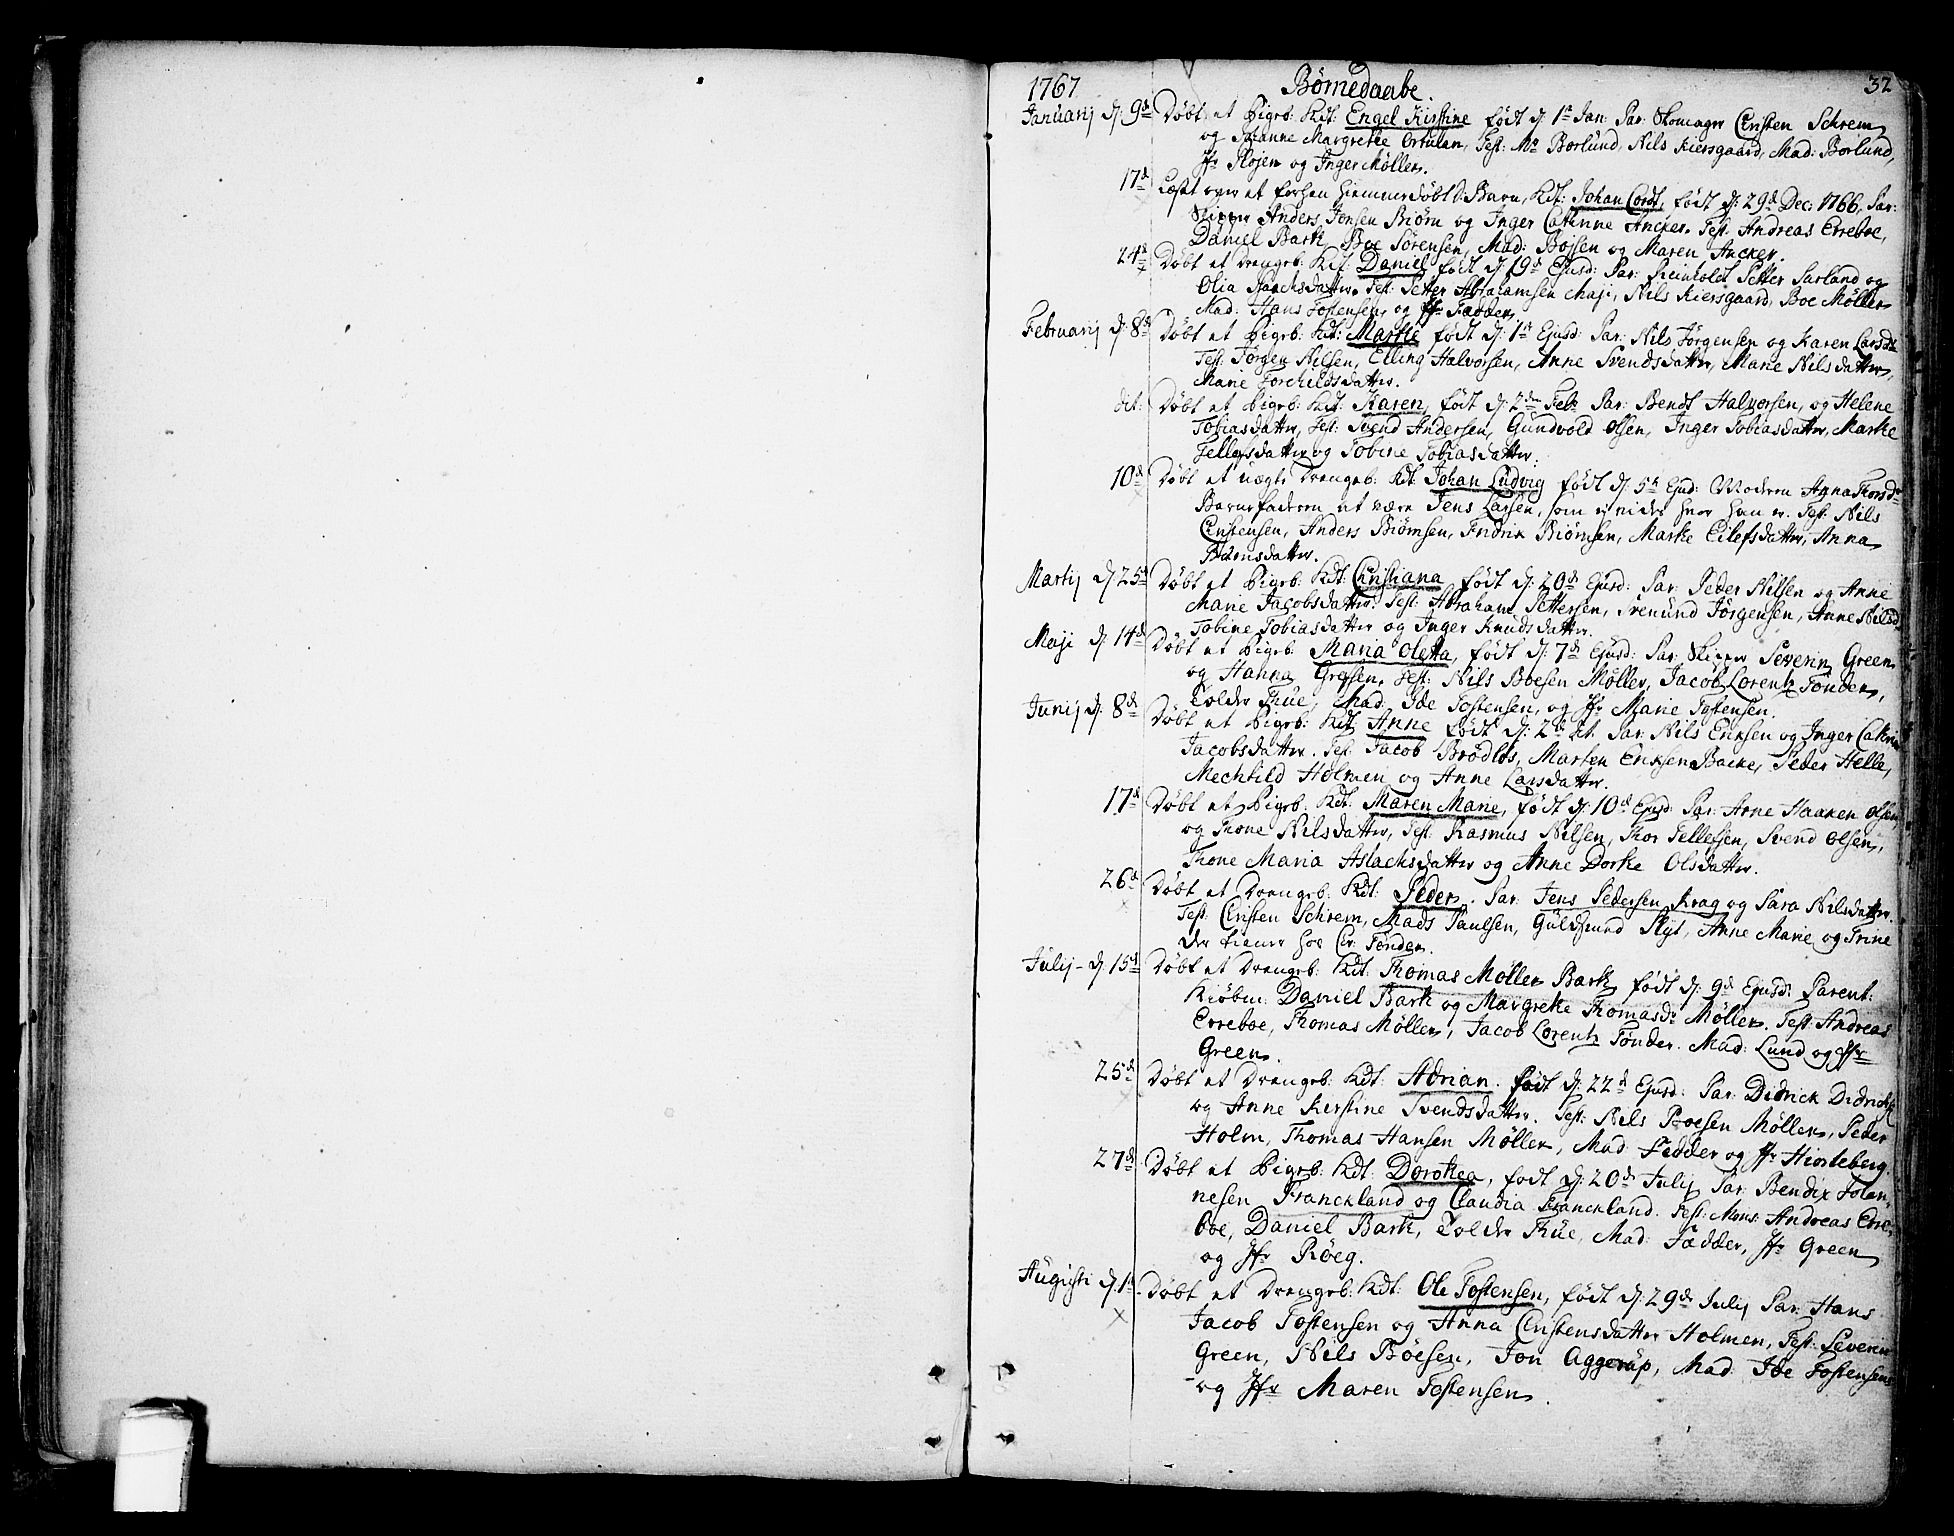 1767 Børnedaabe. 32
Januarij d: 9d Døbt et Pigeb: Kdt: Engel Kirstine født d: 1te Jan: Par: Skomager Christen Schrem
og Susanne Margrethe Test: Mr Borlund, Nils Kiersgaard, Mad: Borlund,
Jfr Plojer og Inger Møller.
17d Læst over et forhen hiemmedøbt Barn, Kdt: Johan Cordt, født d: 29d Dec: 1766, Par:
Skipper Anders Jensen Biørn og Inger Cathrine Ancker. Test: Andreas Erreboe,
Daniel Bark, Boe Sørensen, Mad: Bojsen og Maren Ancker.
24d Døbt et Drengeb: Kdt: Daniel født d: 19d Ejusd: Par: Reinholdt Petter Sarland og
Olia Isachsdatter. Test: Petter Abrahamsen Maji, Nils Kiersgaard, Boe Møller
Mad: Hans Tostensen og Jfr Fædder.
Februarij d: 8d Døbt et Pigeb: Kdt: Marthe født d: 1te Ejusd: Par: Nils Jørgensen og Karen Larsdr
Test: Jørgen Nilsen, Elling Halvorsen, Anne Svendsdatter, Marie Nilsdatter,
Marie Torchildsdatter.
dit: Døbt et Pigeb: Kdt: Karen, født d: 2den Feb: Par: Bendt Halvorsen, og Helene
Tobiasdatter, Test: Svend Andersen, Gundvold Olsen, Inger Tobiasdatter, Marthe
Tellefsdatter og Tobine Tobiasdatter.
10d Døbt et uægte Drengeb: Kdt: Johan Ludvig født d: 5te Ejusd: Moderen Anna Thorsdr
Barnefaderen at være Jens Larsen, som ej vides hvor han er. Test: Nils
Christensen, Anders Biørnsen, Fridrik Biørnsen, Marthe Eilefsdatter, Anna
Biørnsdatter.
Martij d: 25d Døbt et Pigeb: Kdt: Christiana født d: 20de Ejusd: Par: Peder Nilsen og Anne
Marie Jacobsdatter. Test: Abraham Pettersen, Svenund Jørgensen, Anne Nilsd
Tobine Tobiasdatter og Inger Knudsdatter.
Maji d: 14d Døbt et Pigeb: Maria Oletta, født d: 7d Ejusd: Par: Skipper Severin Green
og Hanna Gregsen. Test: Nils Boesen Møller, Jacob Lorentz Tønder,
Tolder Thue, Mad: Ide Tostensen, og Jfr Marie Tostensen.
Junij d: 8de Døbt et Pigeb: Kdt: Anne født d: 2d dt. Par: Nils Erichsen og Inger Cathr
Jacobsdatter. Test: Jacob Brødløs, Marten Erichsen Bache, Peder Helle,
Mechtild Holmen og Anne Larsdatter.
17d Døbt et Pigeb: Kdt: Maren Marie, født d: 10d Ejusd Par: Arne Haaken Olsen
og Thone Nilsdatter, Test: Rasmus Nilsen, Thor Tellefsen, Svend Olsen,
Thone Maria Aslachsdatter og Anne Dorthe Olsdatter.
26d Døbt et Drengeb: Kdt: Peder. Par: Jens Pedersen Krag og Sara Nilsdatter.
Test: Christen Schrem, Mads Paulsen, Guldmund Slyt, Anne Marie og Trine
der tiener hos Cr: Tønder.
Julij d: 15d Døbt et Drengeb: Kdt: Thomas Møller Bark født d: 9d Ejusd: Parent:
Kiøbm: Daniel Bark og Margrethe Thomasdr Møller. Test: Andreas
Erreboe, Thomas Møller, Jacob Lorentz Tønder. Mad: Lund og Jfr
Green.
25d Døbt et Drengeb: Kdt: Adrian. født d: 22d Ejusd: Par: Didrick Didricks
og Anne Kirstine Svendsdatter. Test: Nils Boesen Møller, Peder
Holm, Thomas Hansen Møller, Mad: Fedder og Jfr Hiorteberg.
27de Døbt et Pigeb: Kdt: Dorothea, født d: 20de Julij Par: Bendix Johan
nesen Franckland og Claudia Franckland. Test: Mons: Andreas Erre
boe, Daniel Bark, Tolder Thue, Mad: Fædder, Jfr Green
og Jfr Røeg.
Augusti d: 1te Døbt et Drengeb: Kdt: Ole Tostensen, født d: 29de Julij Par: Hans
Jacob Tostensen og Anna Christensdatter Holmen, Test: Severin
Green, Nils Boesen, Jon Aggerup, Mad: Ide Tostensen
og Jfr Maren Tostensen.